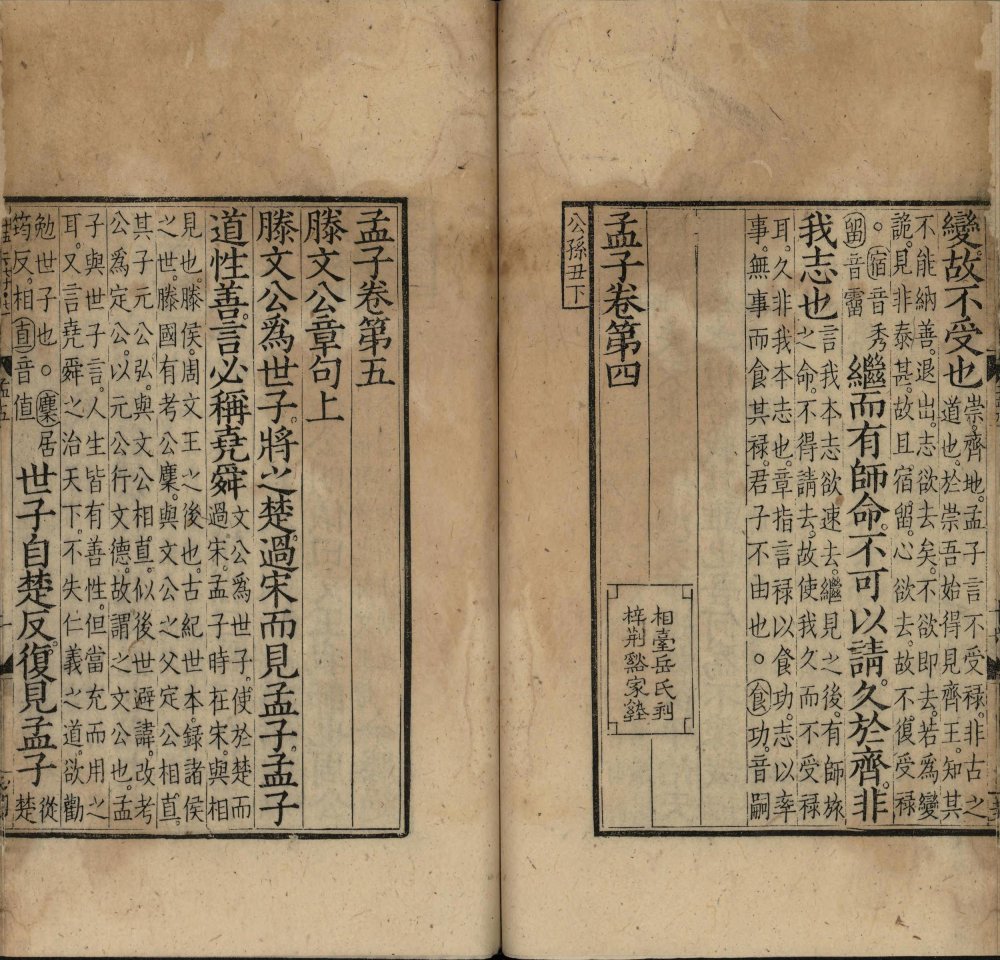 變故不受也
崇齊地孟子言不受祿非古之
道也於崇吾始得見齊王知其
不能納善退出志欲去矣不欲即去若為變
詭見非泰甚故且宿留心欲去故不復受祿
。宿音秀
留音霤
繼而有師命不可以請久於齊非
我志也
言我本志欲速去繼見之後有師旅
之命不得請去故使我久而不受祿
耳久非我本志也章指言祿以食功志以率
事無事而食其祿君子不由也。食功音嗣
孟子卷第四
相臺岳氏刻
梓荆谿家塾
公孫丑下
孟子卷第五
滕文公章句上
滕文公為世子將之楚過宋而見孟子孟子
道性善言必稱堯舜
文公為世子使於楚而
過宋孟子時在宋與相
見也滕侯周文王之後也古紀世本錄諸侯
之世滕國有考公麋與文公之父定公相直
其子元公弘與文公相直似後世避諱改考
公為定公以元公行文德故謂之文公也孟
子與世子言人生皆有善性但當充而用之
耳又言堯舜之治天下不失仁義之道欲勸
勉世子也。麋居
筠反相直音值
世子自楚反復見孟子
從
楚
孟五